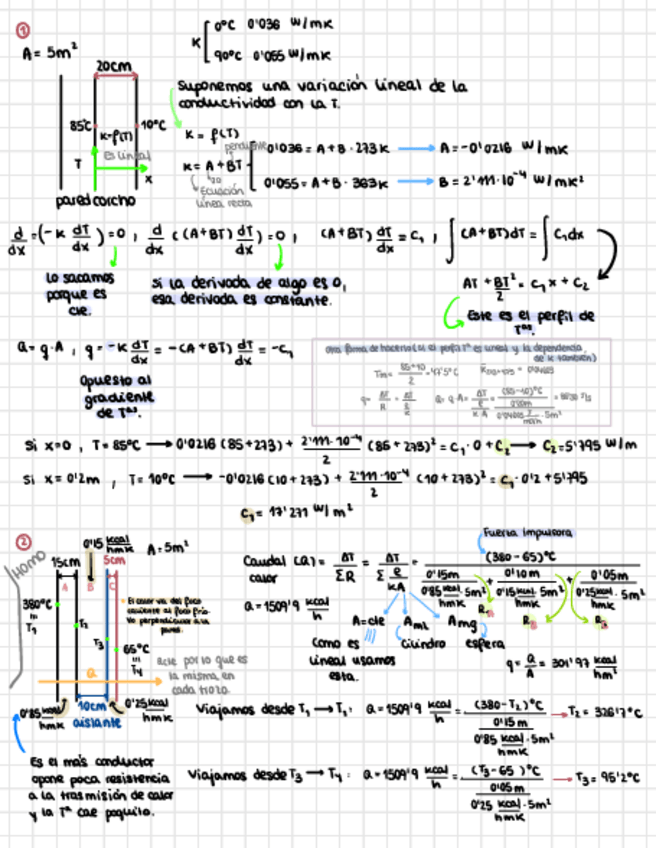 ①
A = 5m²
K
0°C 0'036 W/mK
90°C 0'055 W/mK
20cm
85°C
K=f(T)
10°C
Es lineal
T
x
pared corcho
Suponemos una variación lineal de la
conductividad con la T.
K = f(T)
pendiente
K = A + BT
Ecuación
línea recta
0'036 = A + B · 273K → A = -0'0216 W/mK
0'055 = A + B · 363K → B = 2'111·10⁻⁴ W/mK²
d/dx = (-K dT/dx) = 0 , d/dx ((A+BT) dT/dx) = 0 , (A+BT) dT/dx = C₁ , ∫(A+BT)dT = ∫C₁dx
lo sacamos
porque es
cte.
si la derivada de algo es 0,
esa derivada es constante.
AT + BT²/2 = C₁x + C₂
Este es el perfil de
Tªs.
Q = q·A , q = -K dT/dx = -(A+BT) dT/dx = -C₁
Opuesto al
gradiente
de Tªs.
Otra forma de hacerlo (si el perfil Tª es lineal y la dependencia
de K también)
Tm = 85+10/2 = 47'5°C
Si x=0 , T = 85°C → 0'0216 (85+273) + 2'111·10⁻⁴/2 (85+273)² = C₁·0 + C₂ → C₂ = 5'795 W/m
Si x = 0'2m , T = 10°C → -0'0216 (10+273) + 2'111·10⁻⁴/2 (10+273)² = C₁·0'2 + 5'795
C₁ = 17'271 W/m²
②
HOMO
0'15 kcal/hmK
A = 5m²
15cm
5cm
A
B
C
380°C
=
T₁
T₂
T₃
65°C
=
T₄
El calor va del foco
caliente al foco frío
Va perpendicular a la
pared.
Q
Q cte por lo que es
la misma, en
cada trozo.
0'85 kcal/hmK
10cm
aislante
0'25 kcal/hmK
Es el más conductor
opone poca resistencia
a la trasmisión de calor
y la Tª cae poquito.
Fuerza Impulsora
Caudal (Q) = ΔT/ΣR = ΔT/Σ e/KA = (380-65)°C / 0'15m/0'85 kcal/hmK · 5m² + 0'10m/0'15 kcal/hmK · 5m² + 0'05m/0'25 kcal/hmK · 5m²
calor
Q = 1509'9 kcal/h
A=cte
A_ML
A_mg
Como es
lineal usamos
esta.
Cilindro
esfera
q = Q/A = 301'97 kcal/hm²
Viajamos desde T₁ → T₂: Q = 1509'9 kcal/h = (380-T₂)°C / 0'15m/0'85 kcal/hmK · 5m² → T₂ = 326'7°C
Viajamos desde T₃ → T₄: Q = 1509'9 kcal/h = (T₃-65)°C / 0'05m/0'25 kcal/hmK · 5m² → T₃ = 95'2°C